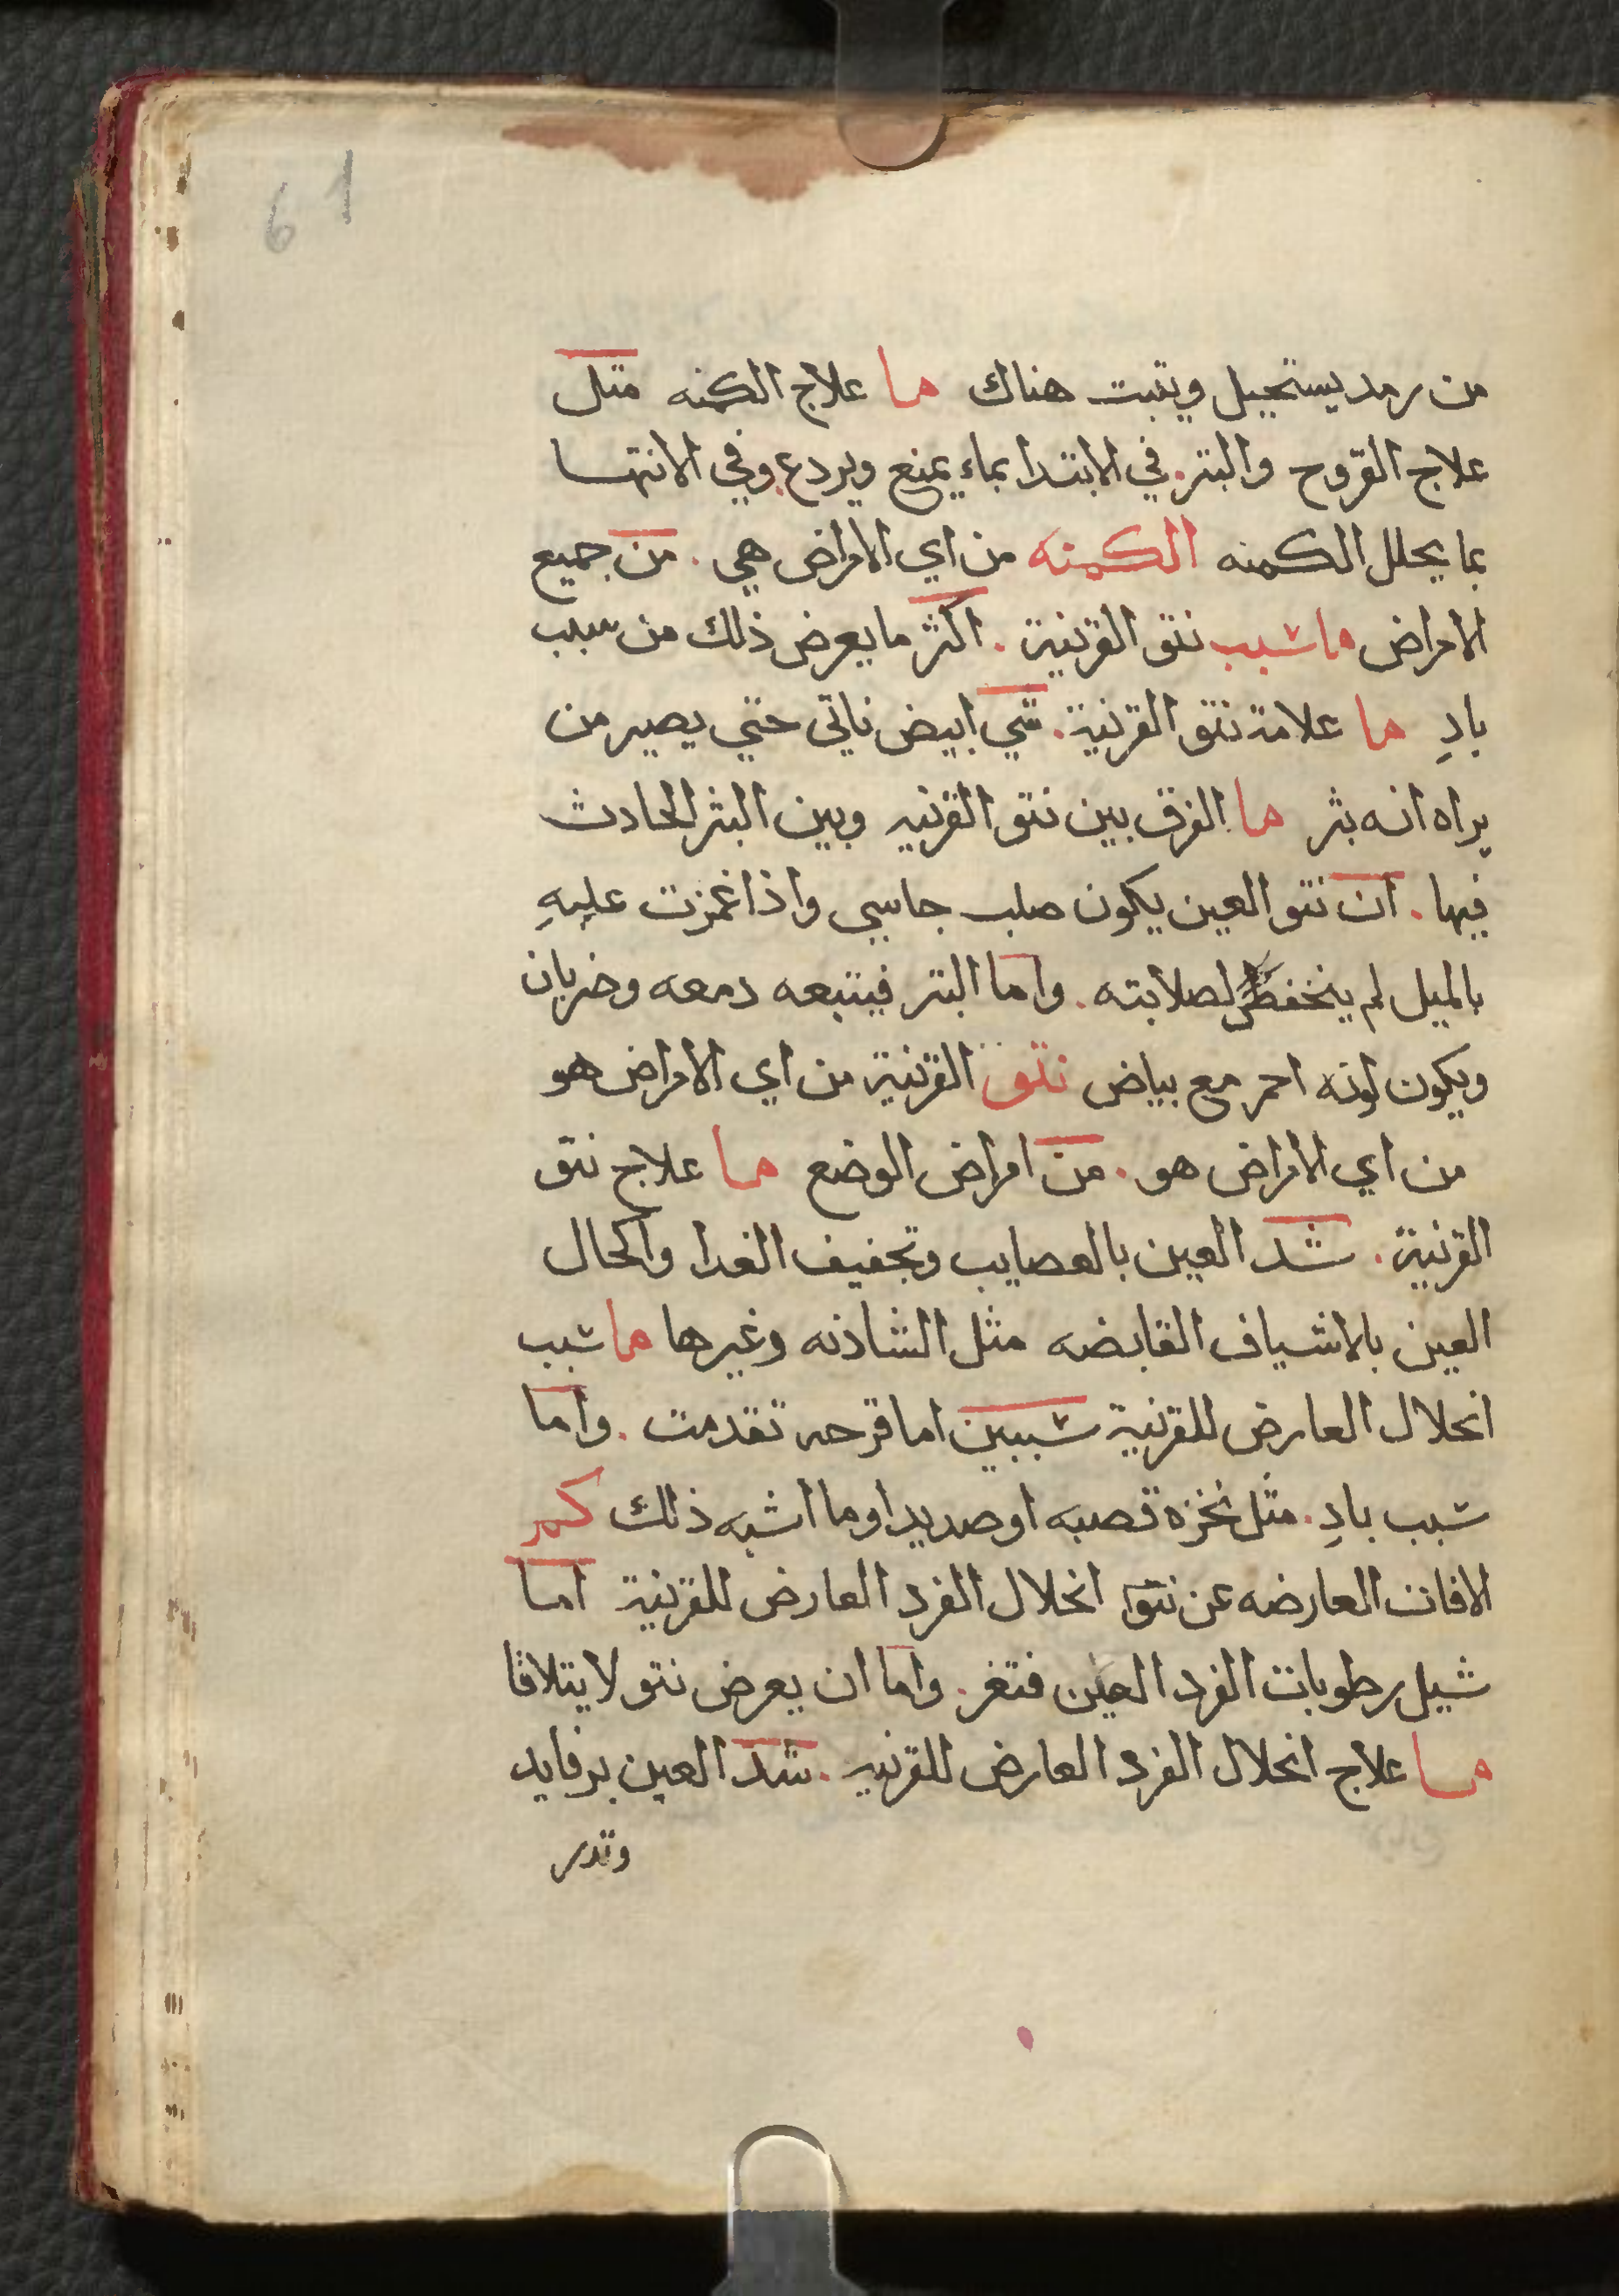 61
من رمد يستحيل ويثبت هناك ما علاج الكمنه مثل
علاج القروح والبتر. في الابتدا بماء يمنع ويردع. وفي الانتها
بما يحلل الكمنه الكمنه من اي الامراض هي. من جميع
الامراض ما شبب نتو القرنية. اكثر ما يعرض ذلك من سبب
بادِ ما علامة نتو القرنية. شي ابيض ناتي حتي يصير من
يراه انه بثر ما الفرق بين نتو القرنيه وبين البثر الحادث
فيها. ان نتو العين يكون صلب جاسي واذا غمزت عليهِ
بالميل لم ينخفض لصلابته. واما البتر فيتبعه دمعه وضربان
ويكون لونه احمر مع بياض نتو القرنية من اي الامراض هو
من اي الامراض هو. من امراض الوضع ما علاج نتو
القرنية. شد العين بالعصايب وتجفيف الغدا واكحال
العين بالاشياف القابضه مثل الشاذنه وغيرها ما شبب
انحلال العارض للقرنية شببين اما قرحه تقدمت. واما
شبب بادِ. مثل نخزة قصبه او صديدا وما اشبه ذلك كم
الافات العارضه عن نتو انحلال الفرد العارض للقرنية اما
شيل رطوبات الفرد العين فتغر. واما ان يعرض نتو لا يتلاقا
ما علاج انحلال الفرد العارض للقرنيه. شد العين برفايد
وتدر